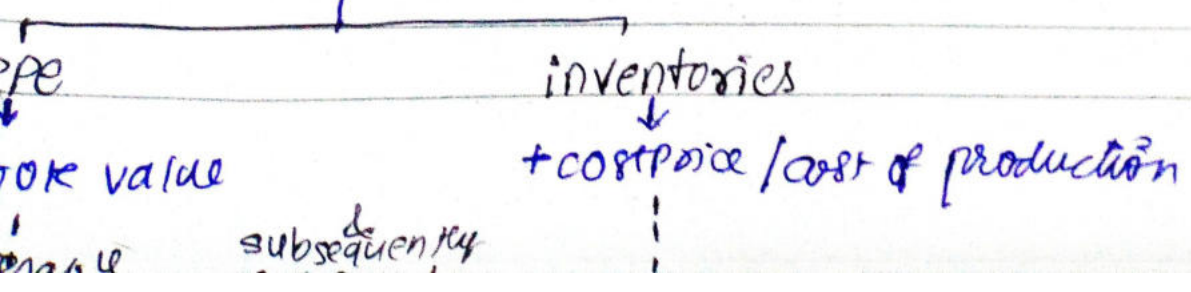 PPE inventories
book value +cost price / cost of production
& subsequently